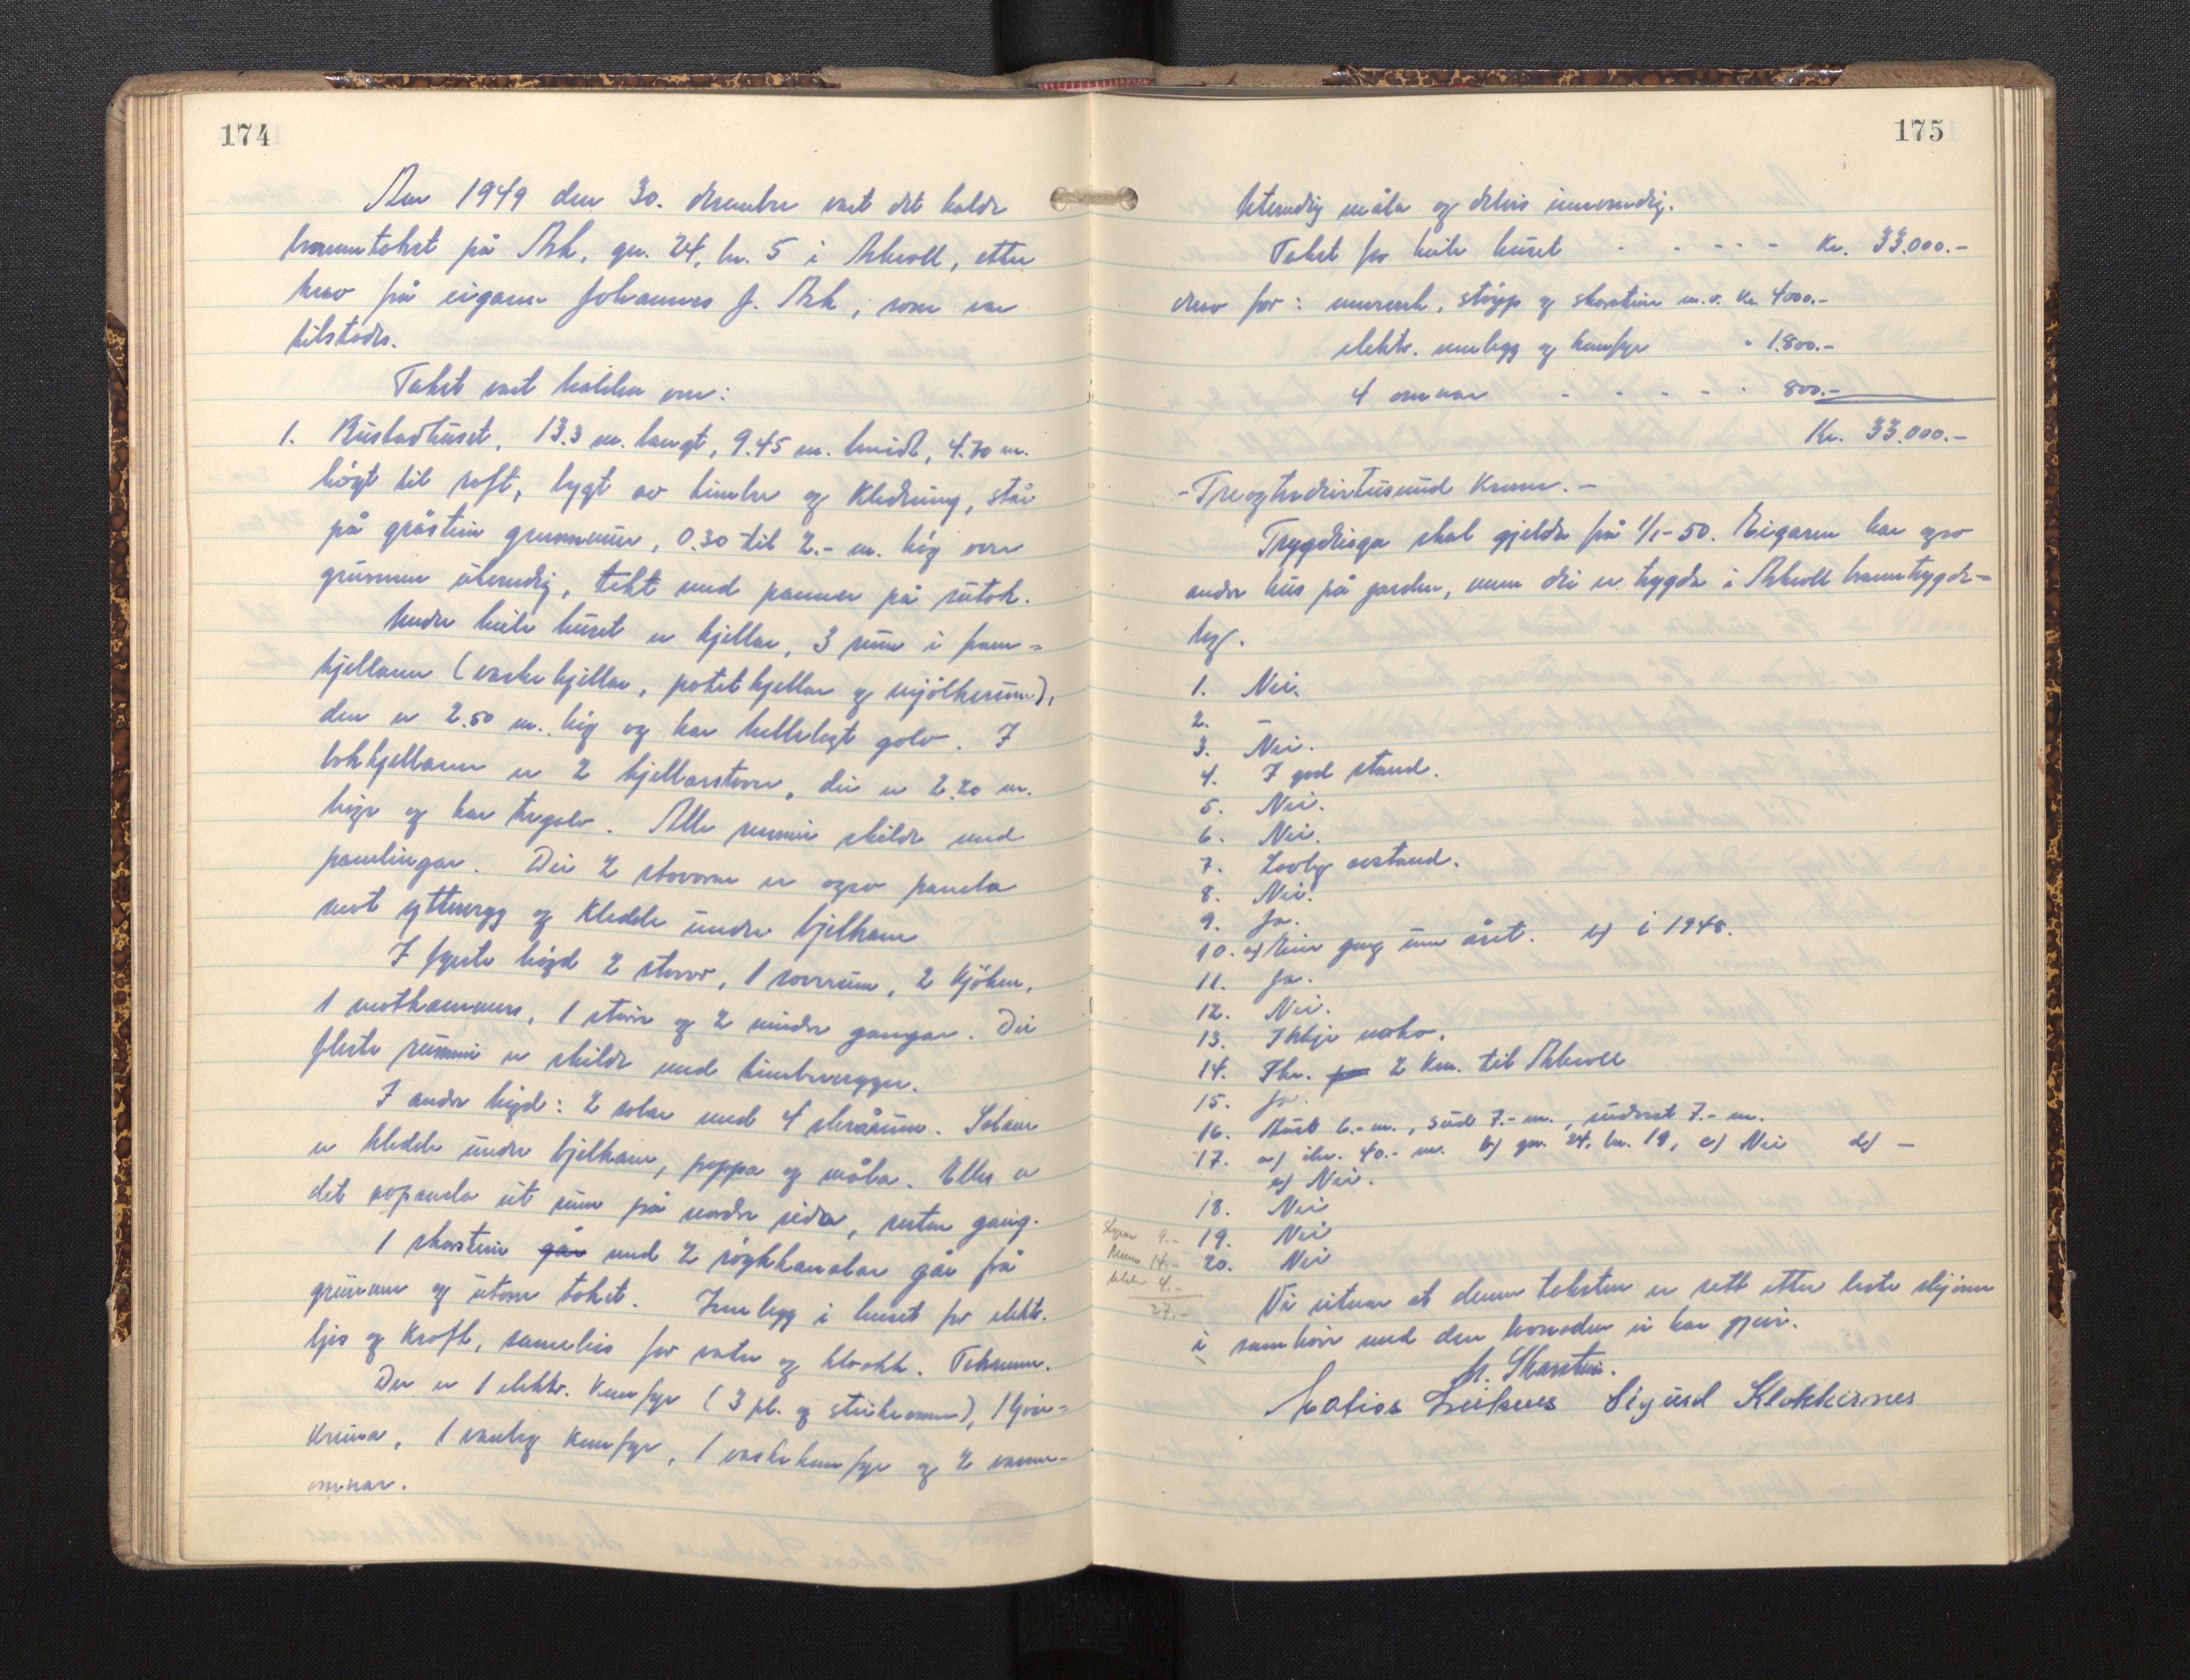 174
Aar 1949 den 30. desember vart det halde
branntakst på Ask, gn. 24, bn. 5 i Askvoll, etter
krav frå eigaren Johannes J. Ask, som var
tilstades.
Takst vart halden over:
1. Bustadhuset, 13.3 m. langt, 9.45 m. breidt, 4.70 m.
högt til roft, bygt av timber og kledning, står
på gråstein grunnmur, 0.30 til 2.- m. hög over
grunnen utvendig, tekt med panner på sutak.
Under heile huset er kjellar, 3 rum i fram-
kjellaren (vaskekjellar, potetkjellar og mjölkerum),
den er 2.50 m. hög og har hellelagt golv. I
bakkjellaren er 2 kjellarstover, dei er 2.20 m.
høge og har tregolv. Alle rummi skilde med
panelingar. Dei 2 stovorne er ogso panela
mot yttervegg og kledde under bjelkane
I fyrste högd 2 stover, 1 soverum, 2 kjöken,
1 matkammers, 1 större og 2 mindre gangar. Dei
fleste rummi er skilde med timbervegger.
I andre högd: 2 salar med 4 skrårum. Salane
er kledde under bjelkane, pappa og måla. Elles er
det avpanela eit rum på nordre sida, resten gang.
1 skorstein går med 2 röykkanalar går frå
grunnen og utom taket. Innlegg i huset for elektr.
ljos og kraft, sameleis for vatn og kloakk. Takrenner.
Der er 1 elektr. komfyr (3 pl. og steikeomn), 1 ljos-
kruna, 1 vanleg komfyr, 1 vaskekomfyr og 2 varme-
omnar.
175
Utvendig måla og delvis innvendig.
Takst for heile huset - - - - - Kr. 33.000.-
derav for: murverk, støyp og skorstein m.v. Kr. 4000.-
elektr. innlegg og komfyr " 1.800.-
4 omnar - - - - - 800.-
Kr. 33.000.-
-Treogtredivetusund kroner.-
Trygdinga skal gjelda frå 1/1-50. Eigaren har ogso
andre hus på garden, men dei er trygda i Askvoll branntrygde-
lag.
1. Nei.
2. -
3. Nei.
4. I god stand.
5. Nei.
6. Nei.
7. Lovleg avstand.
8. Nei.
9. Ja.
10. a) Ein gong um året. b) i 1948.
11. Ja.
12. Nei.
13. Ikkje noko.
14. Ikr. 2 km. til Askvoll
15. Ja.
16. Aust 6.- m., sud 7.- m., sudvest 7.- m.
17. a) ikr. 40.- m. b) gn. 24, bn. 19, c) Nei d) -
e) Nei.
18. Nei
19. Nei
20. Nei
9.-
14.-
4.-
27.-
Vi vitnar at denne taksten er sett etter beste skjönn
i samhöve med den kunnaden vi har gjeve.
M. Skarstein.
Matias Leiknes Sigurd Klokkernes